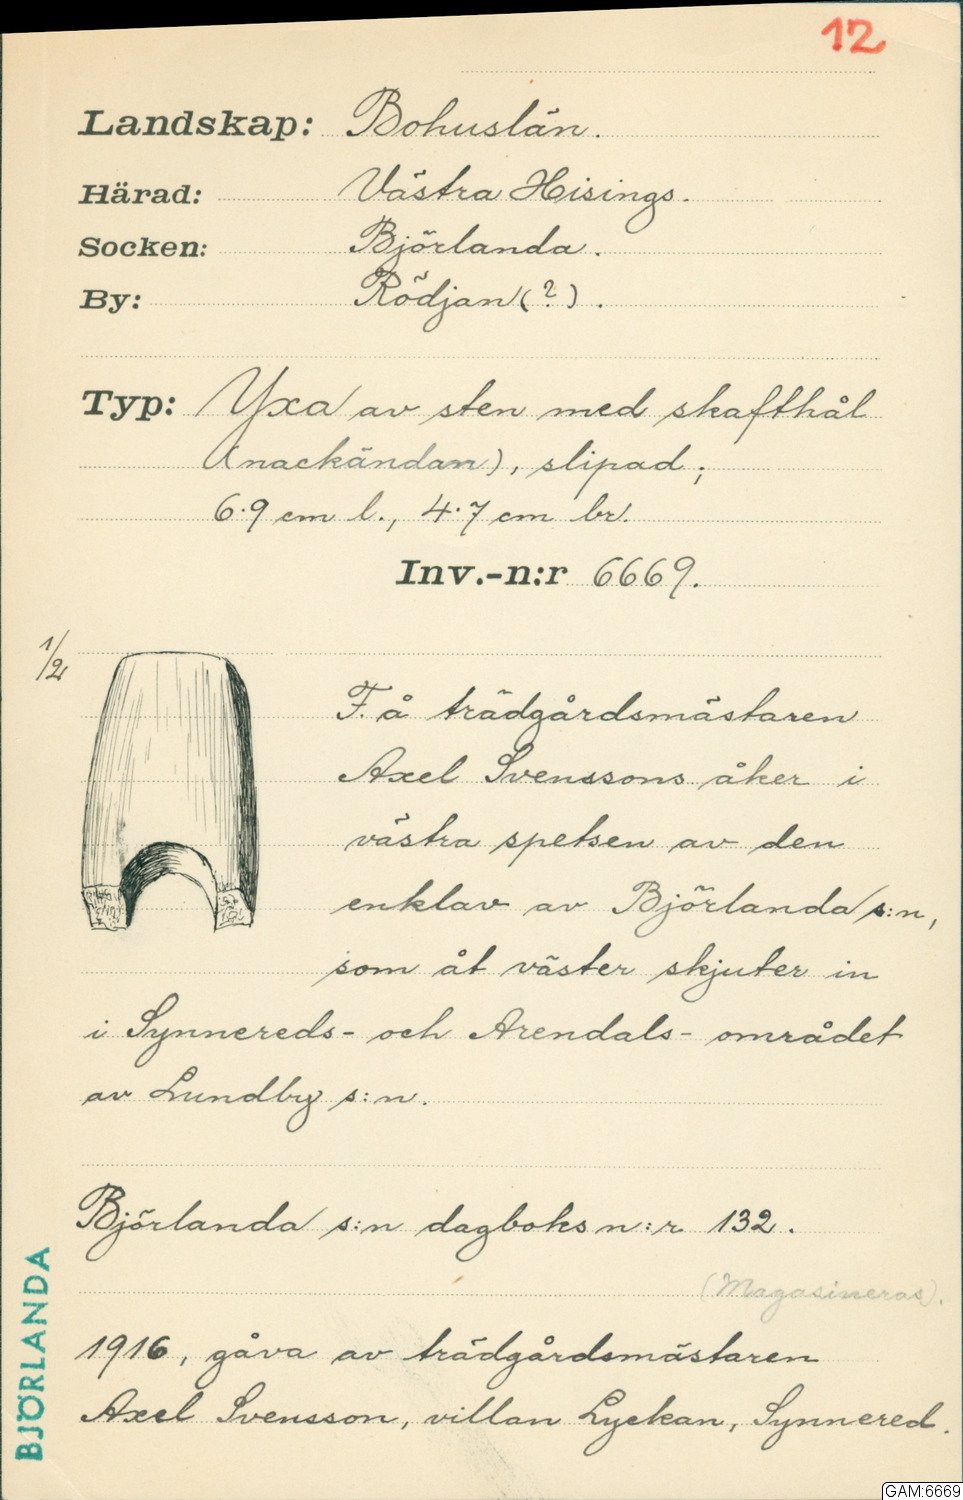 12
Landskap: Bohuslän.
Härad: Västra Hisings.
Socken: Björlanda.
By: Rödjan (?).
Typ: Yxa av sten med skafthål
(nackändan), slipad;
6.9 cm l., 4.7 cm br.
Inv.-n:r 6669.
1/2
F. å trädgårdsmästaren
Axel Svenssons åker i
västra spetsen av den
enklav av Björlanda s:n,
som åt väster skjuter in
i Synnereds- och Arendals-området
av Lundby s:n.
Björlanda s:n dagboks n:r 132.
(Magasineras).
1916, gåva av trädgårdsmästaren
Axel Svensson, villan Lyckan, Synnered.
BJÖRLANDA
GAM:6669